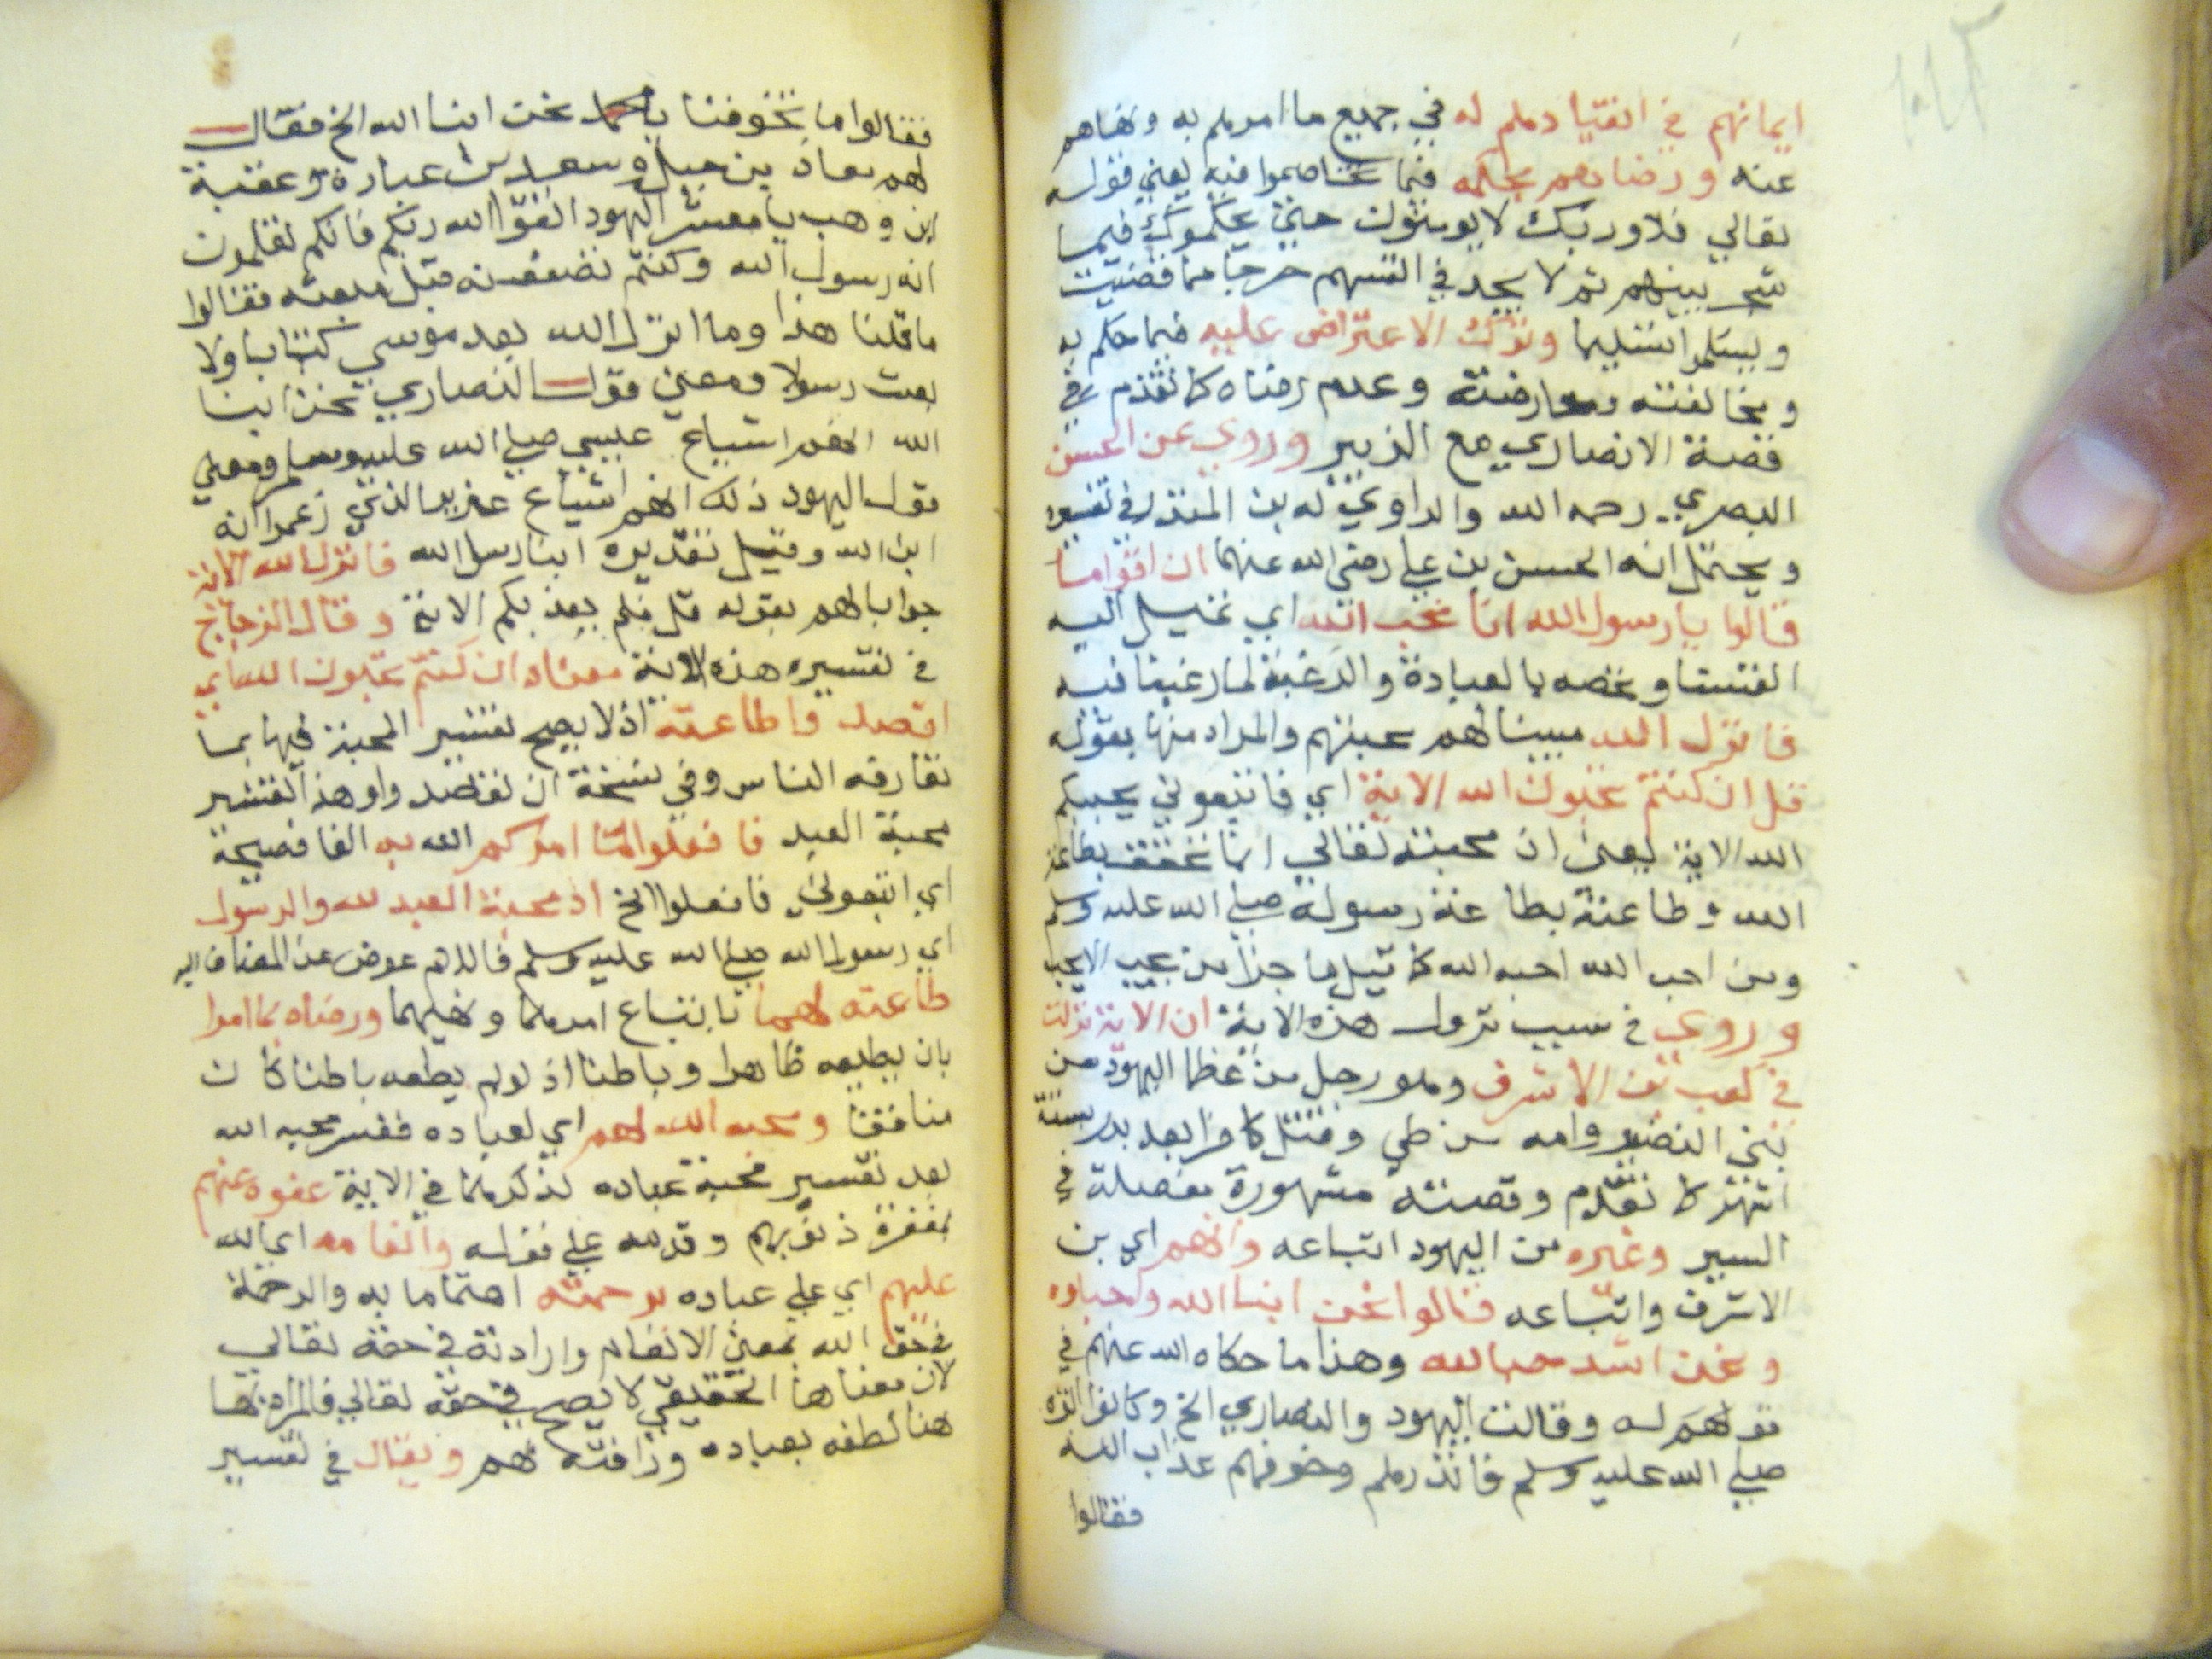 ايمانهم في انقيادهم له في جميع ما امرهم به ونهاهم
عنه ورضاهم بحكمه فيما تخاصموا فيه يعني قوله
تعالي فلا وربك لا يومنون حتي يحكموك فيما
شجر بينهم ثم لا يجدوا في انفسهم حرجا مما قضيت
ويسلموا تسليما وترك الاعتراض عليه فيما حكم به
ومخالفته ومعارضته وعدم رضاه كما تقدم في
قصة الانصاري مع الزبير وروي عن الحسن
البصري رحمه الله والراوي له بن المنذر في تفسيره
ويحتمل انه الحسن بن علي رضي الله عنهما ان اقواما
قالوا يا رسول الله انا نحب الله اي نميل اليه
انفسنا ونخصه بالعبادة والرغبة لما رغبنا فيه
فانزل الله مبينا لهم محبتهم والمراد منها بقوله
قل ان كنتم تحبون الله الاية اي فاتبعوني يحببكم
الله الاية يعني ان محبته تعالي انما تحقق بطاعة
الله وطاعته بطاعة رسوله صلي الله عليه وسلم
ومن احب الله احبه الله كما قيل ما جزا من يحب الا يحب
وروي في سبب نزول هذه الاية ان الاية نزلت
في كعب بن الاشرف وهو رجل من عظما اليهود من
بني النضير وامه من طي وقتل كافرا بعد بدر بستة
اشهر كما تقدم وقصته مشهورة مفصلة في
السير وغيره من اليهود اتباعه وانهم اي بن
الاشرف واتباعه قالوا نحن ابنا الله واحباوه
ونحن اشد حبا لله وهذا ما حكاه الله عنهم في
قولهم له وقالت اليهود والنصاري الخ وكانوا
صلي الله عليه وسلم فانذرهم وخوفهم عذاب الله
فقالوا
فقالوا ما تخوفنا يا محمد نحن ابنا الله الخ فقال
لهم معاذ بن جبل وسعد بن عبادة وعقبة
ابن وهب يا معشر اليهود اتقوا الله ربكم فانكم تعلمون
انه رسول الله وكنتم تصفونه قبل مبعثه فقالوا
ما قلنا هذا وما انزل الله بعد موسي كتابا ولا
بعث رسولا ومعني قول النصاري نحن ابنا
الله انهم اشياع عيسي صلي الله عليه وسلم ومعني
قول اليهود ذلك انهم اشياع عزير الذي زعموا انه
ابن الله وقيل تقديره ابنا رسل الله فانزل الله الاية
جوابا لهم بقوله قل فلم يعذبكم الاية وقال الزجاج
في تفسيره هذه الاية معناه ان كنتم تحبون الله اي
اقصدوا طاعته اذ لا يصح تفسير المحبة فيها بما
تعارفه الناس وفي نسخة ان تقصدوا وهذا تفسير
محبة العبد فافعلوا ما امركم الله به الفا فصيحة
اي اتبعوني فافعلوا الخ اذ محبة العبد لله والرسول
اي رسول الله صلي الله عليه وسلم فاللام عوض عن المضاف اليه
طاعته لهما باتباع امرهما ونهيهما ورضاه بما امرا
بان يطيعه ظاهرا وباطنا اذ لو لم يطعه باطنا كان
منافقا ومحبة الله لهم اي لعباده ففسر محبة الله
بعد تفسير محبة عباده لذكرهما في الاية عفوه عنهم
بمغفرة ذنوبهم وقدمه علي قوله وانعامه اي الله
عليهم اي علي عباده برحمته اهتماما به والرحمة
في حق الله بمعني الانعام وارادته في حقه تعالي
لان معناها الحقيقي لا يصح في حقه تعالي فالمراد بها
هنا لطفه بعباده ورافته لهم ويقال في تفسير